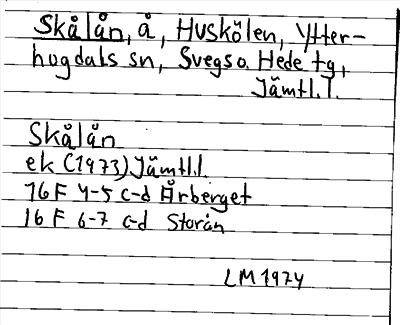 Skålån, å, Huskölen, Ytter-
hogdals sn, Svegs o. Hede tg,
Jämtl. l.
Skålån
ek (1973) Jämtl. l.
16 F 4-5 c-d Årberget
16 F 6-7 c-d Storån
LM 1974